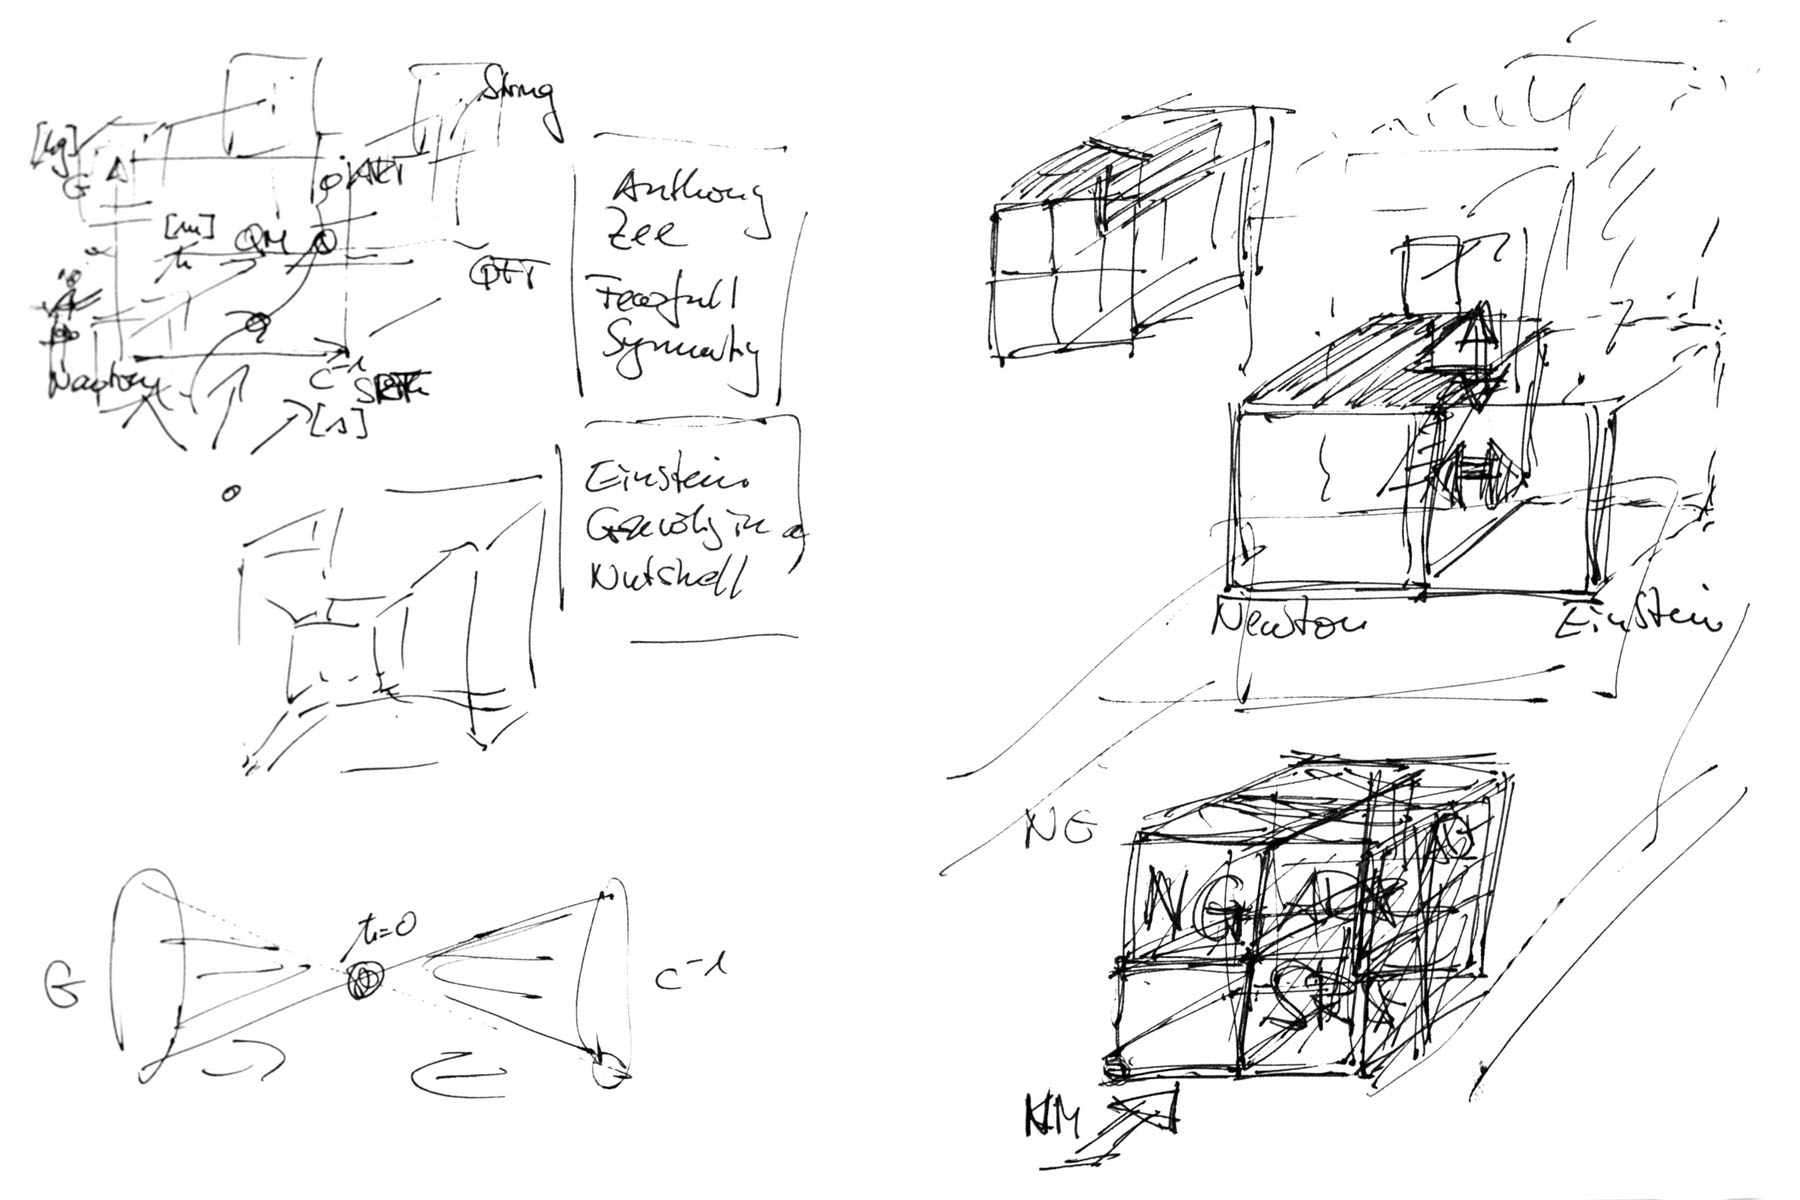 String
[kg]
G
ART
[m]
ħ
QM
QFT
Newton
c⁻¹
[s]
Anthony
Zee
Fearfull
Symmetry
Einstein
Gravity in a
Nutshell
G
ħ=0
c⁻¹
Newton
Einstein
NG
NG
ART
SRT
NM